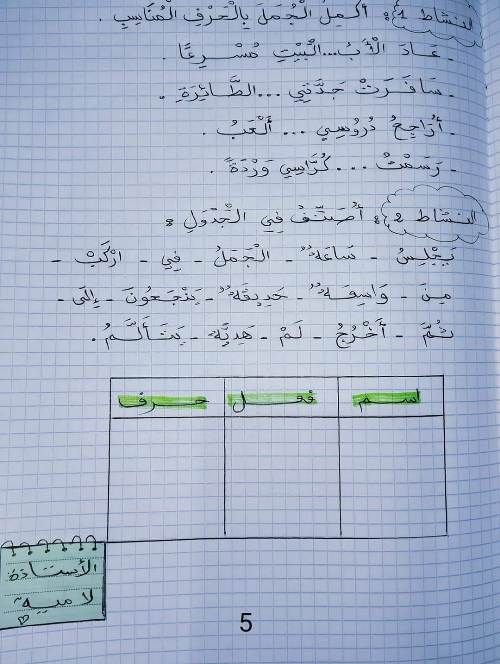 النشاط 1: أُكْمِلُ الْجُمَلَ بِالْحَرْفِ الْمُنَاسِبِ.
- عَادَ الْأَبُ...الْبَيْتِ مُسْرِعًا.
- سَافَرَتْ جَدَّتِي ...الطَّائِرَةِ.
- أُرَاجِعُ دُرُوسِي ... أَلْعَبُ.
- رَسَمْتُ ... كُرَّاسِي وَرْدَةً.
النشاط 2: أُصَنِّفُ فِي الْجَدْوَلِ:
يَجْلِسُ - سَاعَةٌ - الْجَمَلُ - فِي - ارْكَبْ -
مِنَ - وَاسِعَةٌ - حَدِيقَةٌ - يَنْجَحُونَ - إِلَى -
ثُمَّ - أَخْرُجُ - لَمْ - هَدِيَّةٌ - يَتَأَلَّمُ.
اسم فعل حرف
الأستاذة
لامية
5